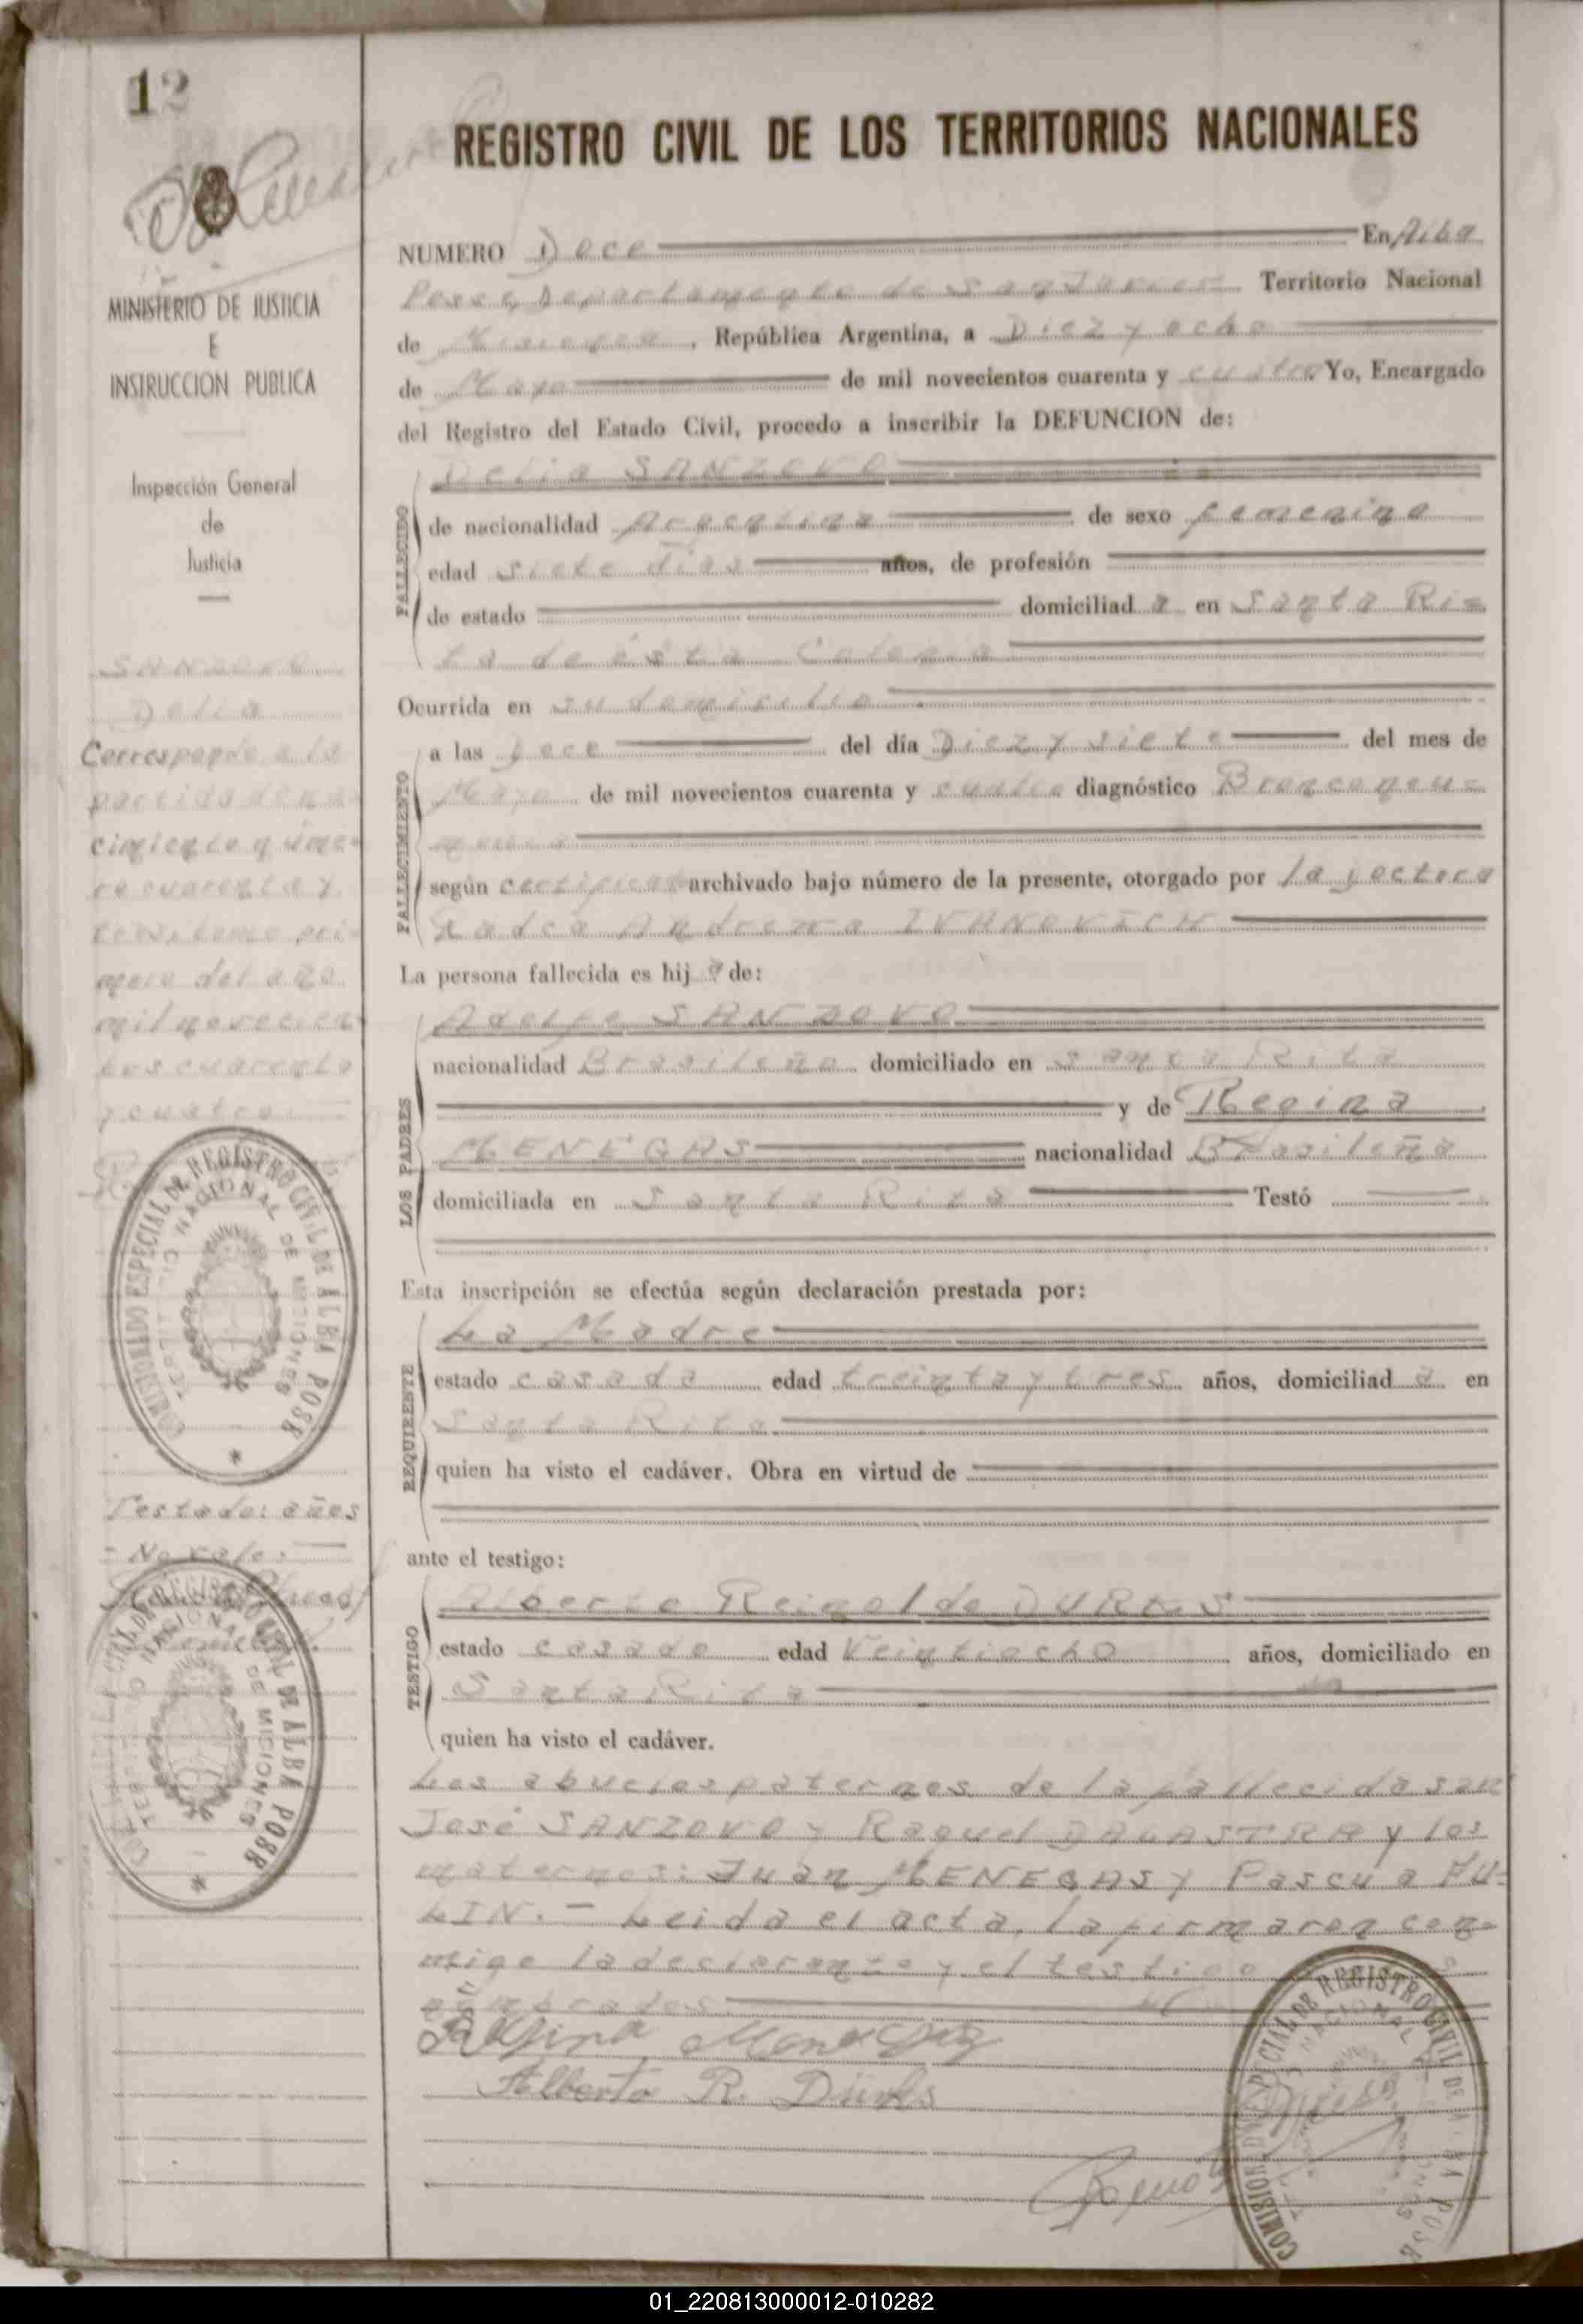 12
REGISTRO CIVIL DE LOS TERRITORIOS NACIONALES
MINISTERIO DE JUSTICIA
E
INSTRUCCION PUBLICA
Inspección General
de
Justicia
SANZOVO
Delia
Corresponde a la
partida de na-
cimiento número
cuarenta y
tomo pri-
mero del año
mil novecien-
tos cuarenta
y cuatro
COMISIONADO ESPECIAL DE REGISTRO CIVIL DE ALBA POSE
TERRITORIO NACIONAL DE MISIONES
Testado: años
- No vale. -
REGISTRO CIVIL DE ALBA POSE
NACIONAL DE MICIONES
NUMERO Doce En Alba
Posse, Departamento de San Javier Territorio Nacional
de Misiones, República Argentina, a Diez y ocho
de Mayo de mil novecientos cuarenta y cuatro Yo, Encargado
del Registro del Estado Civil, procedo a inscribir la DEFUNCION de:
FALLECIDO
Delia SANZOVO
de nacionalidad Argentina de sexo femenino
edad siete días años, de profesión
de estado domiciliad a en Santa Ri=
ta de ésta Colonia
Ocurrida en su domicilio
FALLECIMIENTO
a las Doce del día Diez y siete del mes de
Mayo de mil novecientos cuarenta y cuatro diagnóstico Bronconeu=
monia
según certificado archivado bajo número de la presente, otorgado por la Doctora
Andrema IVANOVICH
La persona fallecida es hij a de:
LOS PADRES
Adolfo SANZOVO
nacionalidad Brasileña domiciliado en Santa Rita
y de Regina
MENEGAS nacionalidad Brasileña
domiciliada en Santa Rita Testó
Esta inscripción se efectúa según declaración prestada por:
REQUIRENTE
La Madre
estado casada edad treinta y tres años, domiciliad a en
Santa Rita
quien ha visto el cadáver. Obra en virtud de
ante el testigo:
TESTIGO
Alberto Reinoldo DURKS
estado casado edad Veintiocho años, domiciliado en
Santa Rita
quien ha visto el cadáver.
Los abuelos paternos de la fallecida son
José SANZOVO y Raquel DALASTRA y los
maternos: Juan MENEGAS y Pascua FU-
LIN. - Leida el acta, la firmaron con-
migo la declarante y el testigo
nombrados.
Regina Menegaz
Alberto R. Dürks
COMISIONADO ESPECIAL DE REGISTRO CIVIL DE ALBA POSE